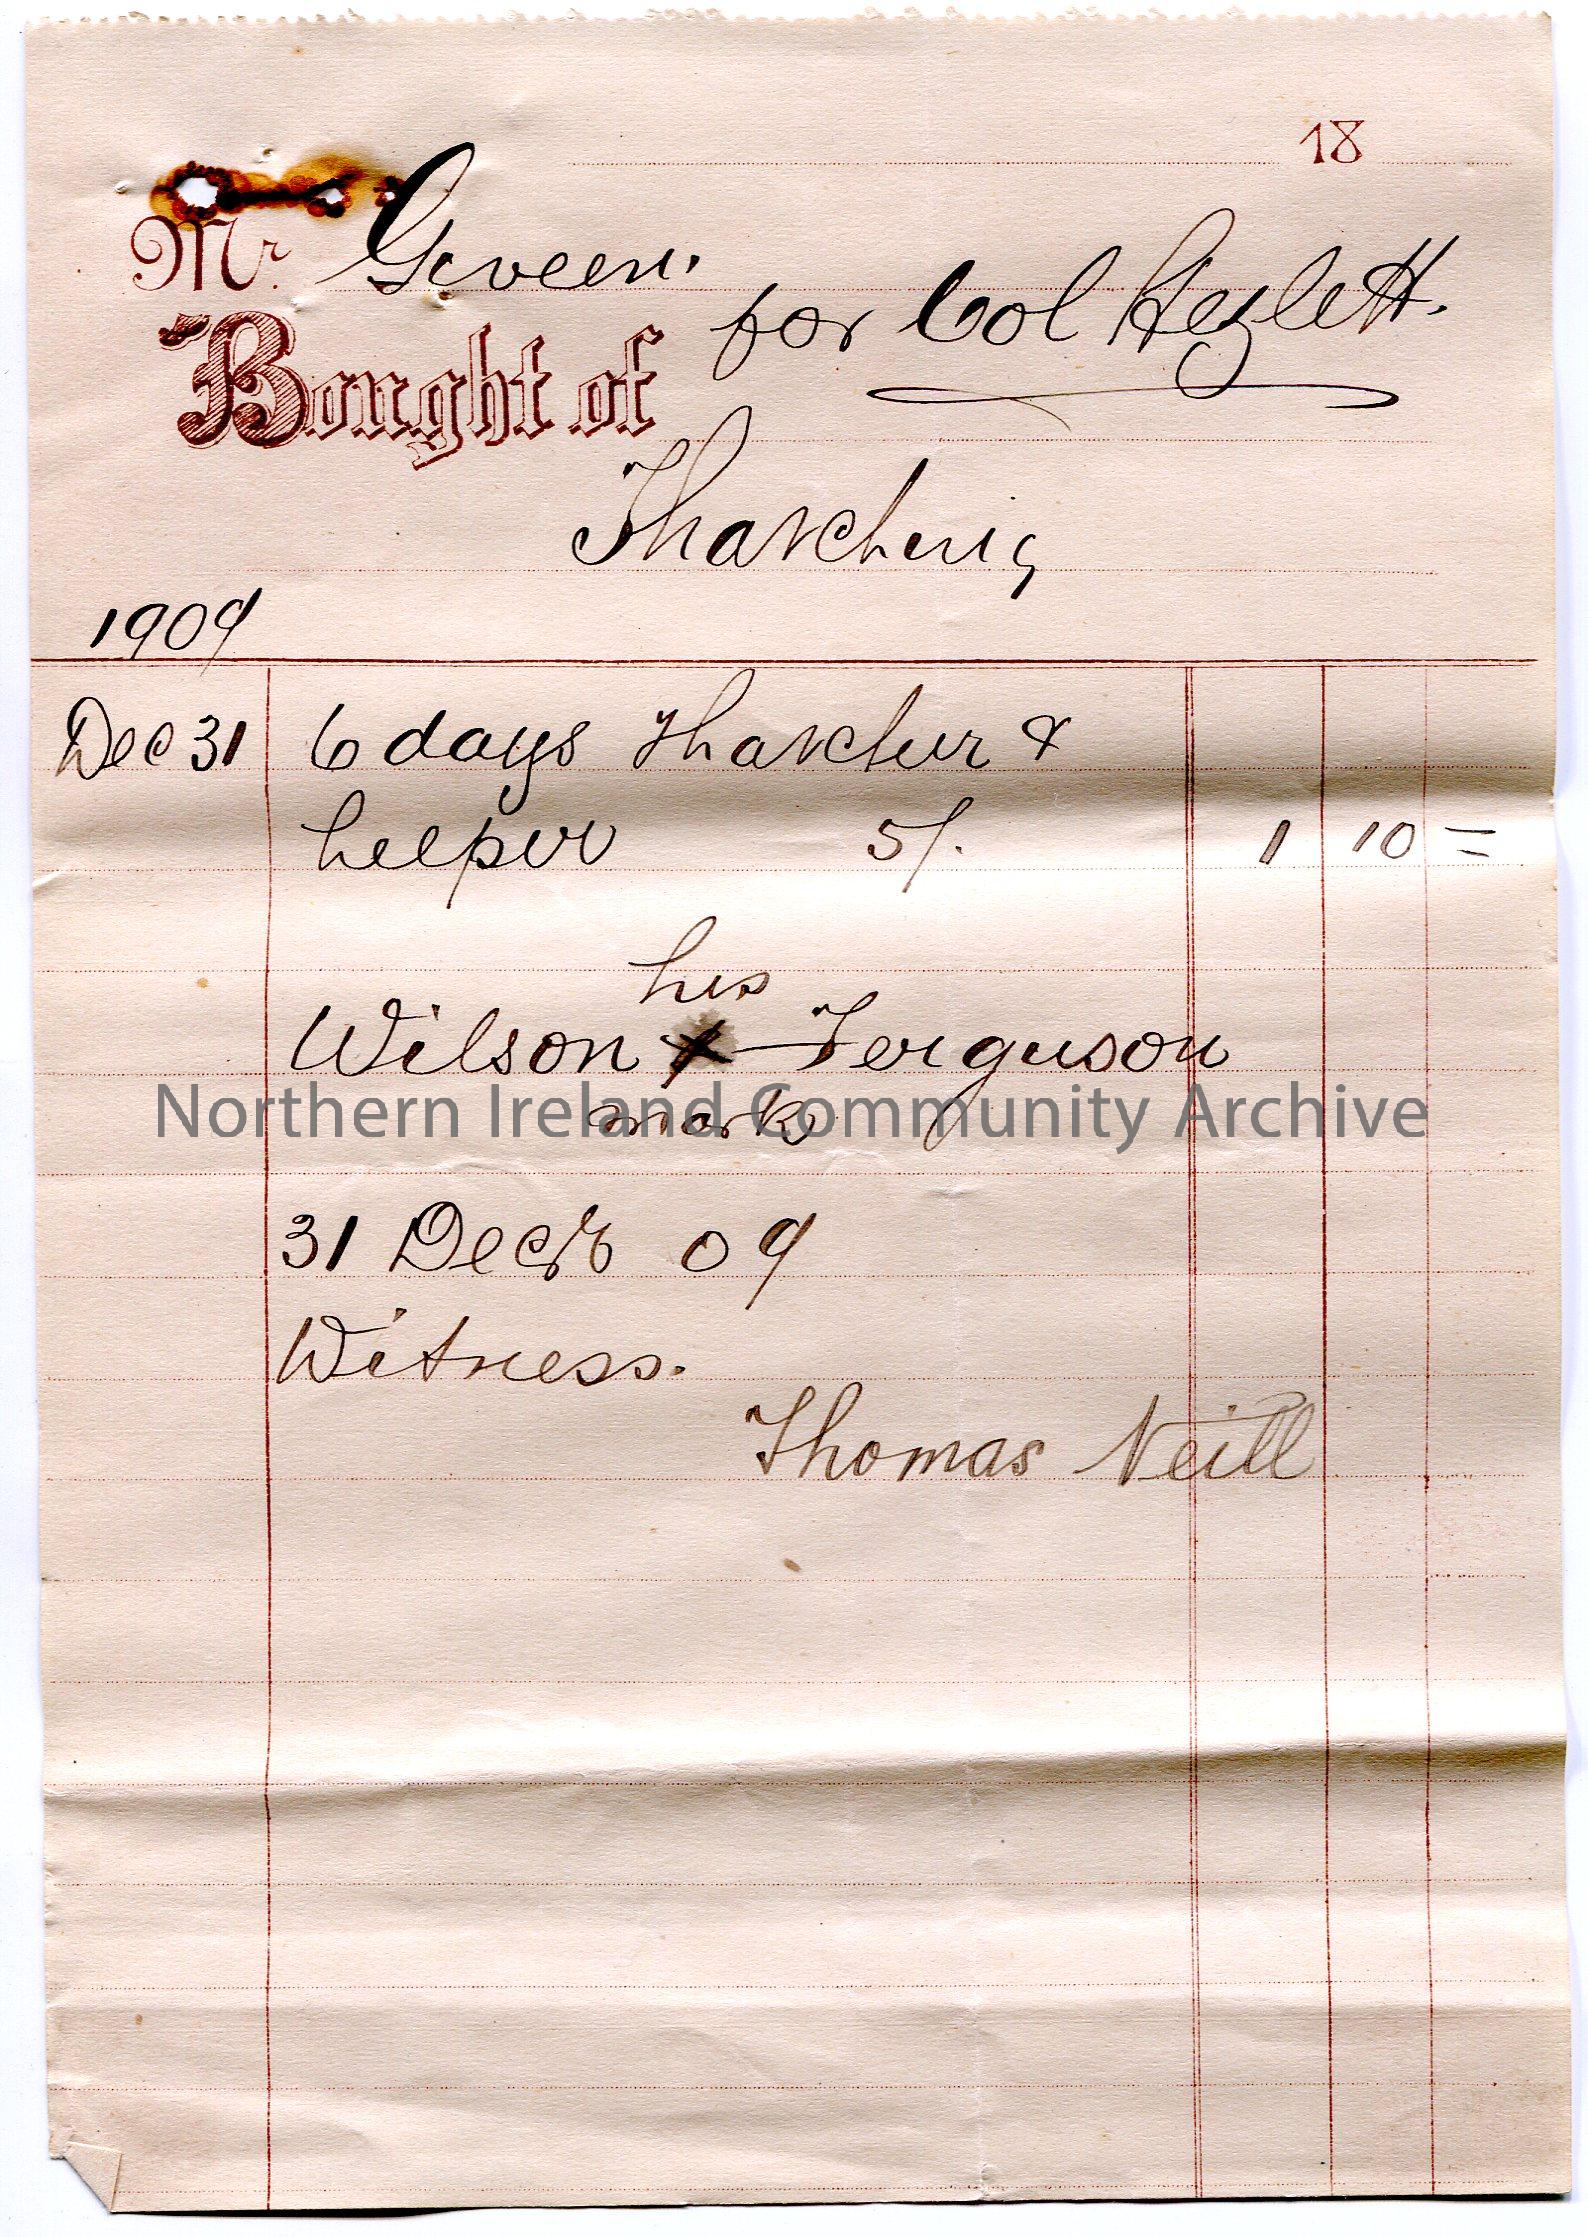 18
Mr. Given.
for Col Hezlett.
Bought of
Thatching
1909
Dec 31 6 days thatcher &
helper 5/. 1 10 =
his
Wilson x Ferguson
mark
Northern Ireland Community Archive
31 Decbr 09
Witness.
Thomas Neill